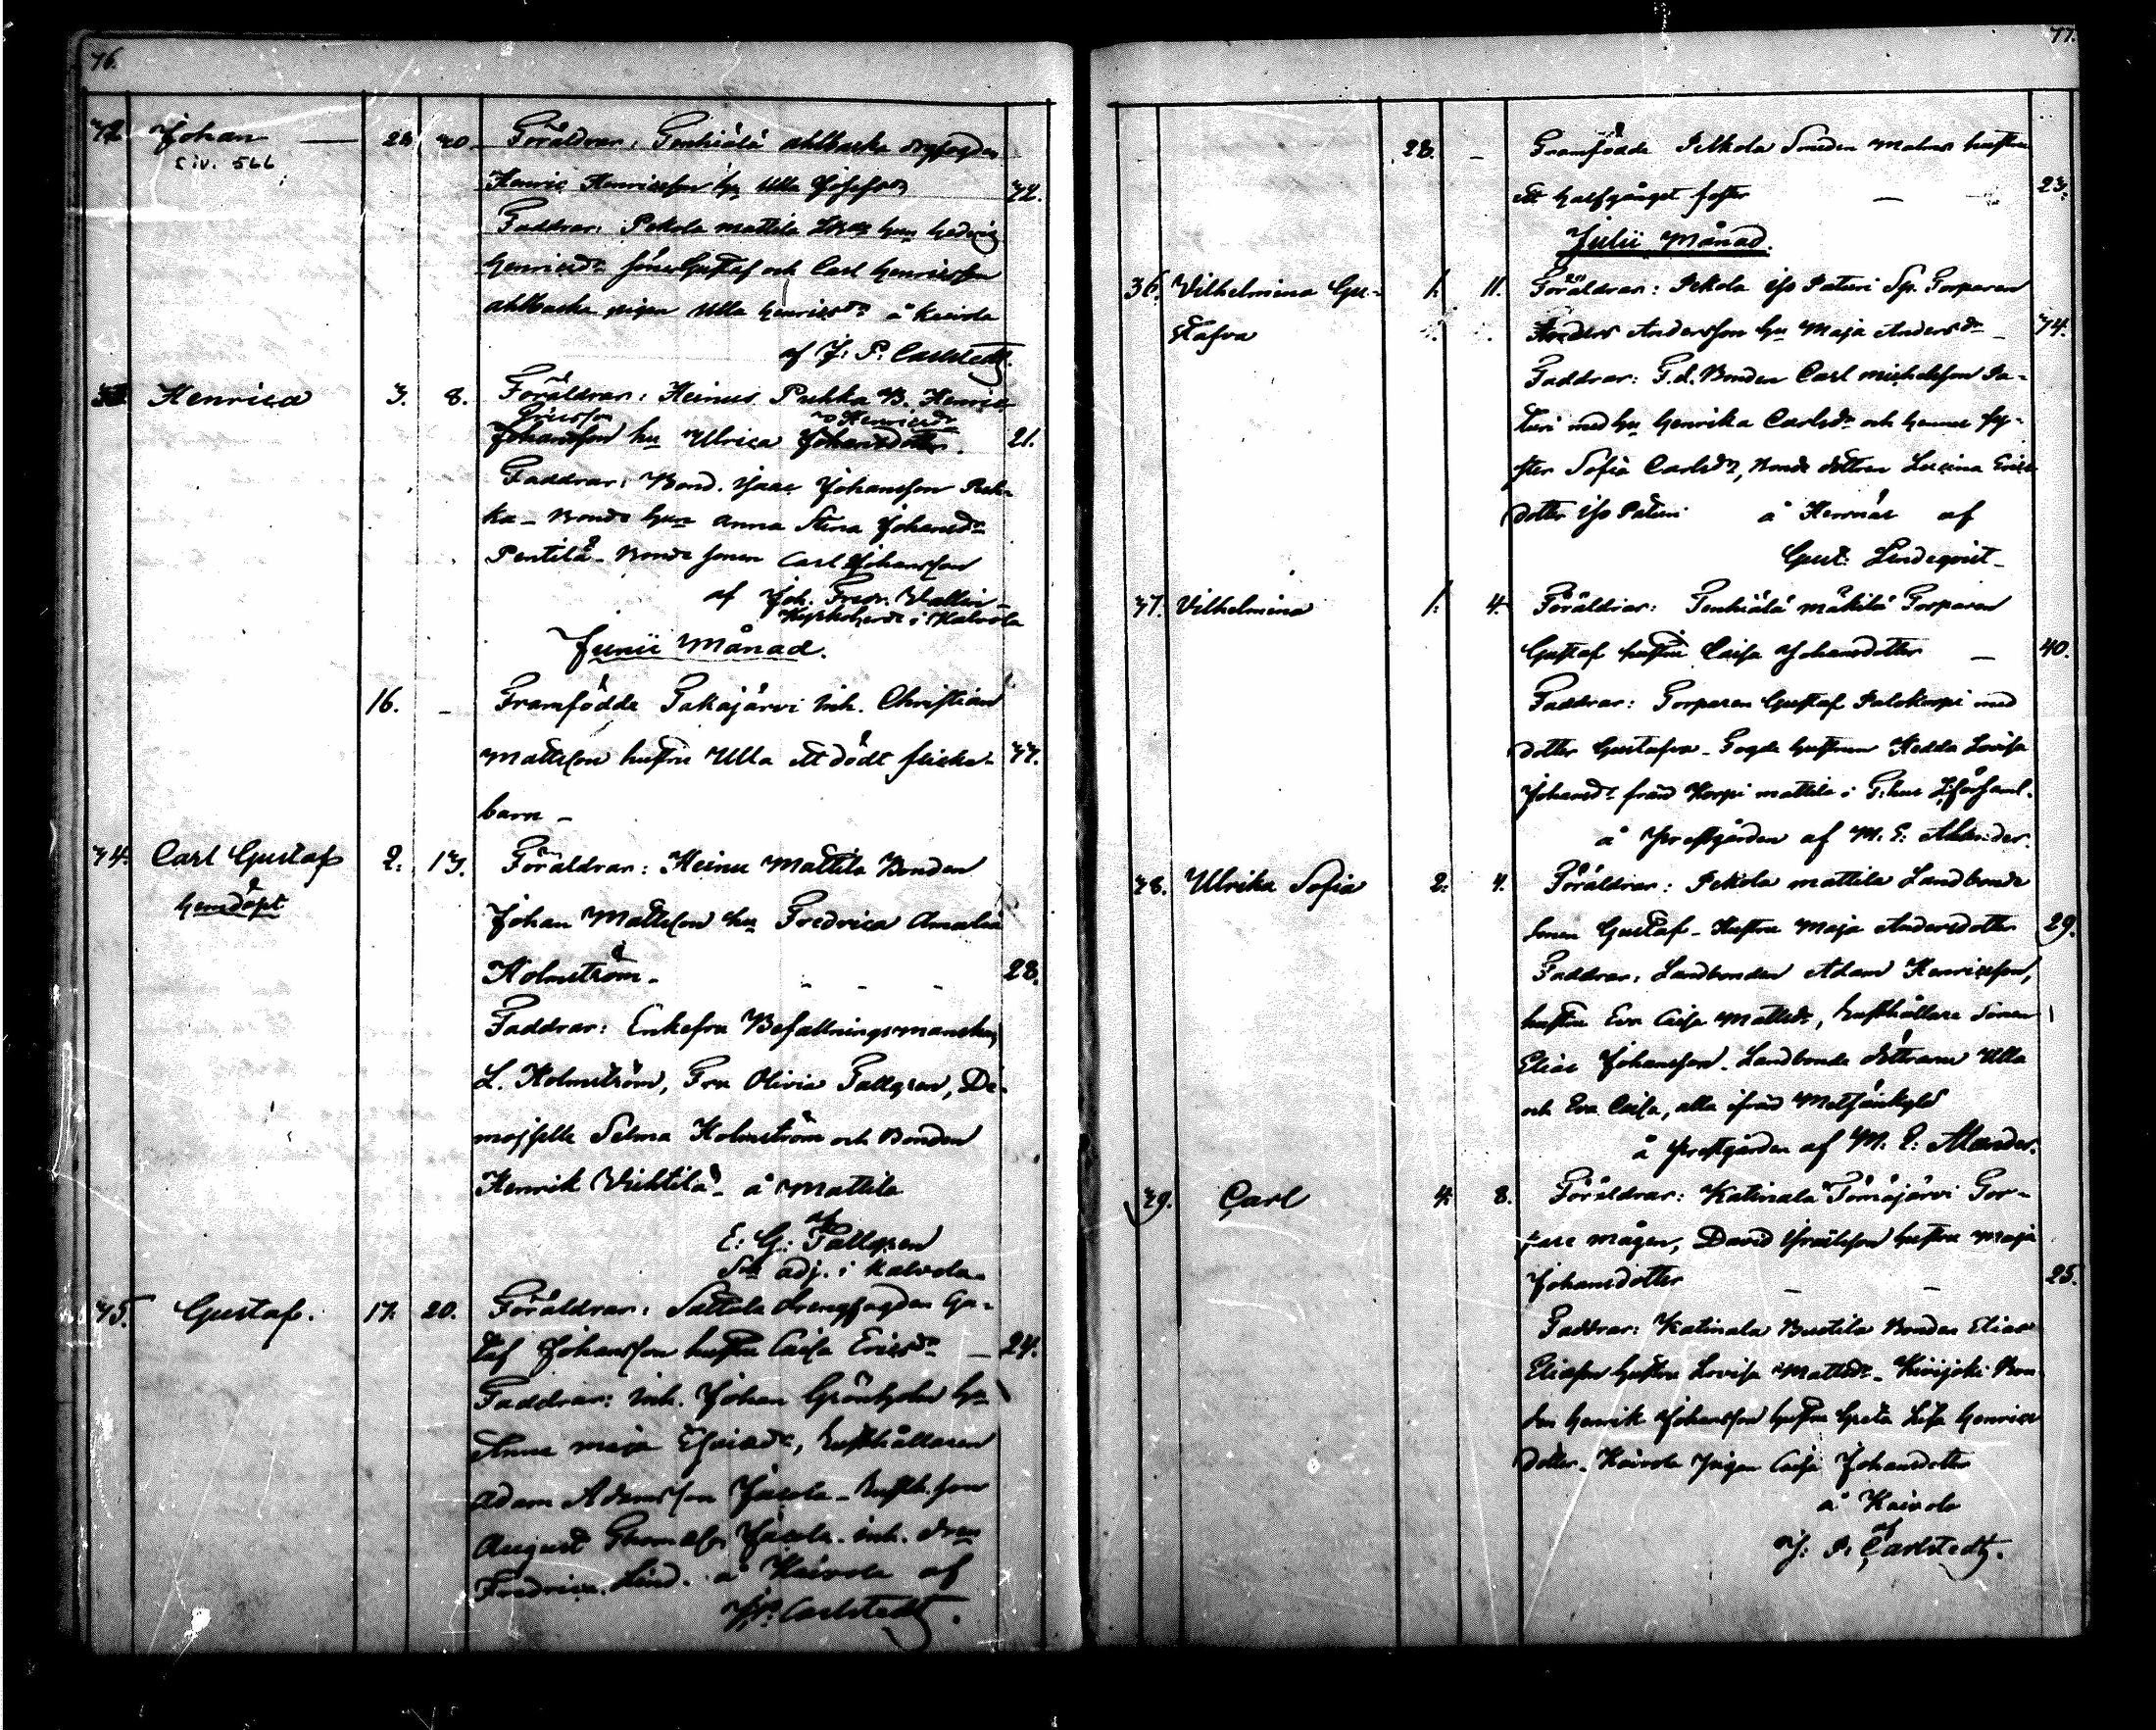 76.
32. Johan — 28. 30. Föräldrar: Tenhiälä ahlbacka drgfogden
Siv. 566
Henric Henricsson hu Ulla Josefsdr 32.
Faddrar: Pekola mattila hun Hedvig
Henricsdr söner Gustaf och Carl Henricsson
ahlbacka pigan Ulla Henricsdr å Kaivola
af J. P. Carlstedt.
Henrica 3. 8. Föräldrar: Heinus Pukka B. Henric
Ericsson Henricsdr
Johansson hu Ulrica Johansdotter. 21.
Faddrar: Bond. Isaac Johansson Puk-
ka – Bonde hun Anna Stina Johansdr
Pentilä – Bonde sonen Carl Johansson
af Joh. Fredr. Wallin
Kyrkoherde i Kalvola
Junii Månad.
16. – Framfödde Takajärvi inh. Christian
Mattsson hustru Ulla ett dödt flicke- 37.
barn –
34. Carl Gustaf 2. 13. Föräldrar: Heinu Mattila Bonden
hemdöpt
Johan Mattsson hu Fredrica Amalia
Holmström – 28.
Faddrar: Enkefru Befallningsmanskan
L. Holmström, Fru Olivia Tallgren, De-
mojselle Selma Holmström och Bonden
Henrik Vichtilä – å Mattila
af
E: G: Tallgren
adj. i Kalvola.
35. Gustaf. 17. 20. Föräldrar: Sattula drengfogden Gu-
staf Johansson hustru Caisa Ericsdr – 24.
Faddrar: inh. Johan Grönholm hu
Anna Maja Esaiadr, Rusthållaren
Adam Adamsson Jacola – Rusth. son
August Thomass. Jacola. inh.
Fredrica Lind. å Kaivola af
J. P. Carlstedt.
77.
28. – Framfödde Pekola Smeden Malms hustru
ett halfgånget foster — 23.
Julii Månad.
36. Vilhelmina Gu- 1. 11. Föräldrar: Pekola iso Paturi Sp. Torparen
stafva Anders Andersson hu Maja Andersdr – 34.
Faddrar: F.d. Bonden Carl Michelsson Pa-
turi med hu Henrika Carlsdr och hennes sy-
ster Sofia Carlsdr, Bonde dottren Lovina Erics
dotter iso Paturi å Hernäs af
Gust: Lindeqvist –
37. Vilhelmina 1. 4. Föräldrar: Tenhiälä mäkilä Torparen
Gustaf hustru Caisa Johansdotter — 40.
Faddrar: Torparen Gustaf Palokorpi med
dotter Gustafva – Fogde hustrun Hedda Lovisa
Johansdr från Korpi mattila i T:hus L:församl.
å Prestgården af M. E: Alander.
38. Ulrika Sofia 2. 4. Föräldrar: Pekola mattila Landbonde
sonen Gustaf – Hustru Maja Andersdotter 29.
Faddrar: Landbonden Adam Henricsson,
hustru Eva Caisa Mattsdr, Rusthållare sonen
Elias Johansson. Landbonde döttrarne Ulla
och Eva Caisa, alla ifrån Metsänkylä
å Prestgården af M. E: Alander.
39. Carl 4. 8. Föräldrar: Katinala Tömäjärvi Tor-
pare mågen, David Israelsson hustru Maja
Johansdotter — — 25.
Faddrar: Katinala Bustila Bonden Elias
Eliasson hustru Lovisa Mattsdr – Kivijoki Bon-
den Henrik Johansson hustru Greta Lisa Henrics
dotter. Kaivola Pigan Caisa Johansdotter
å Kaivola
af
J: P: Carlstedt.